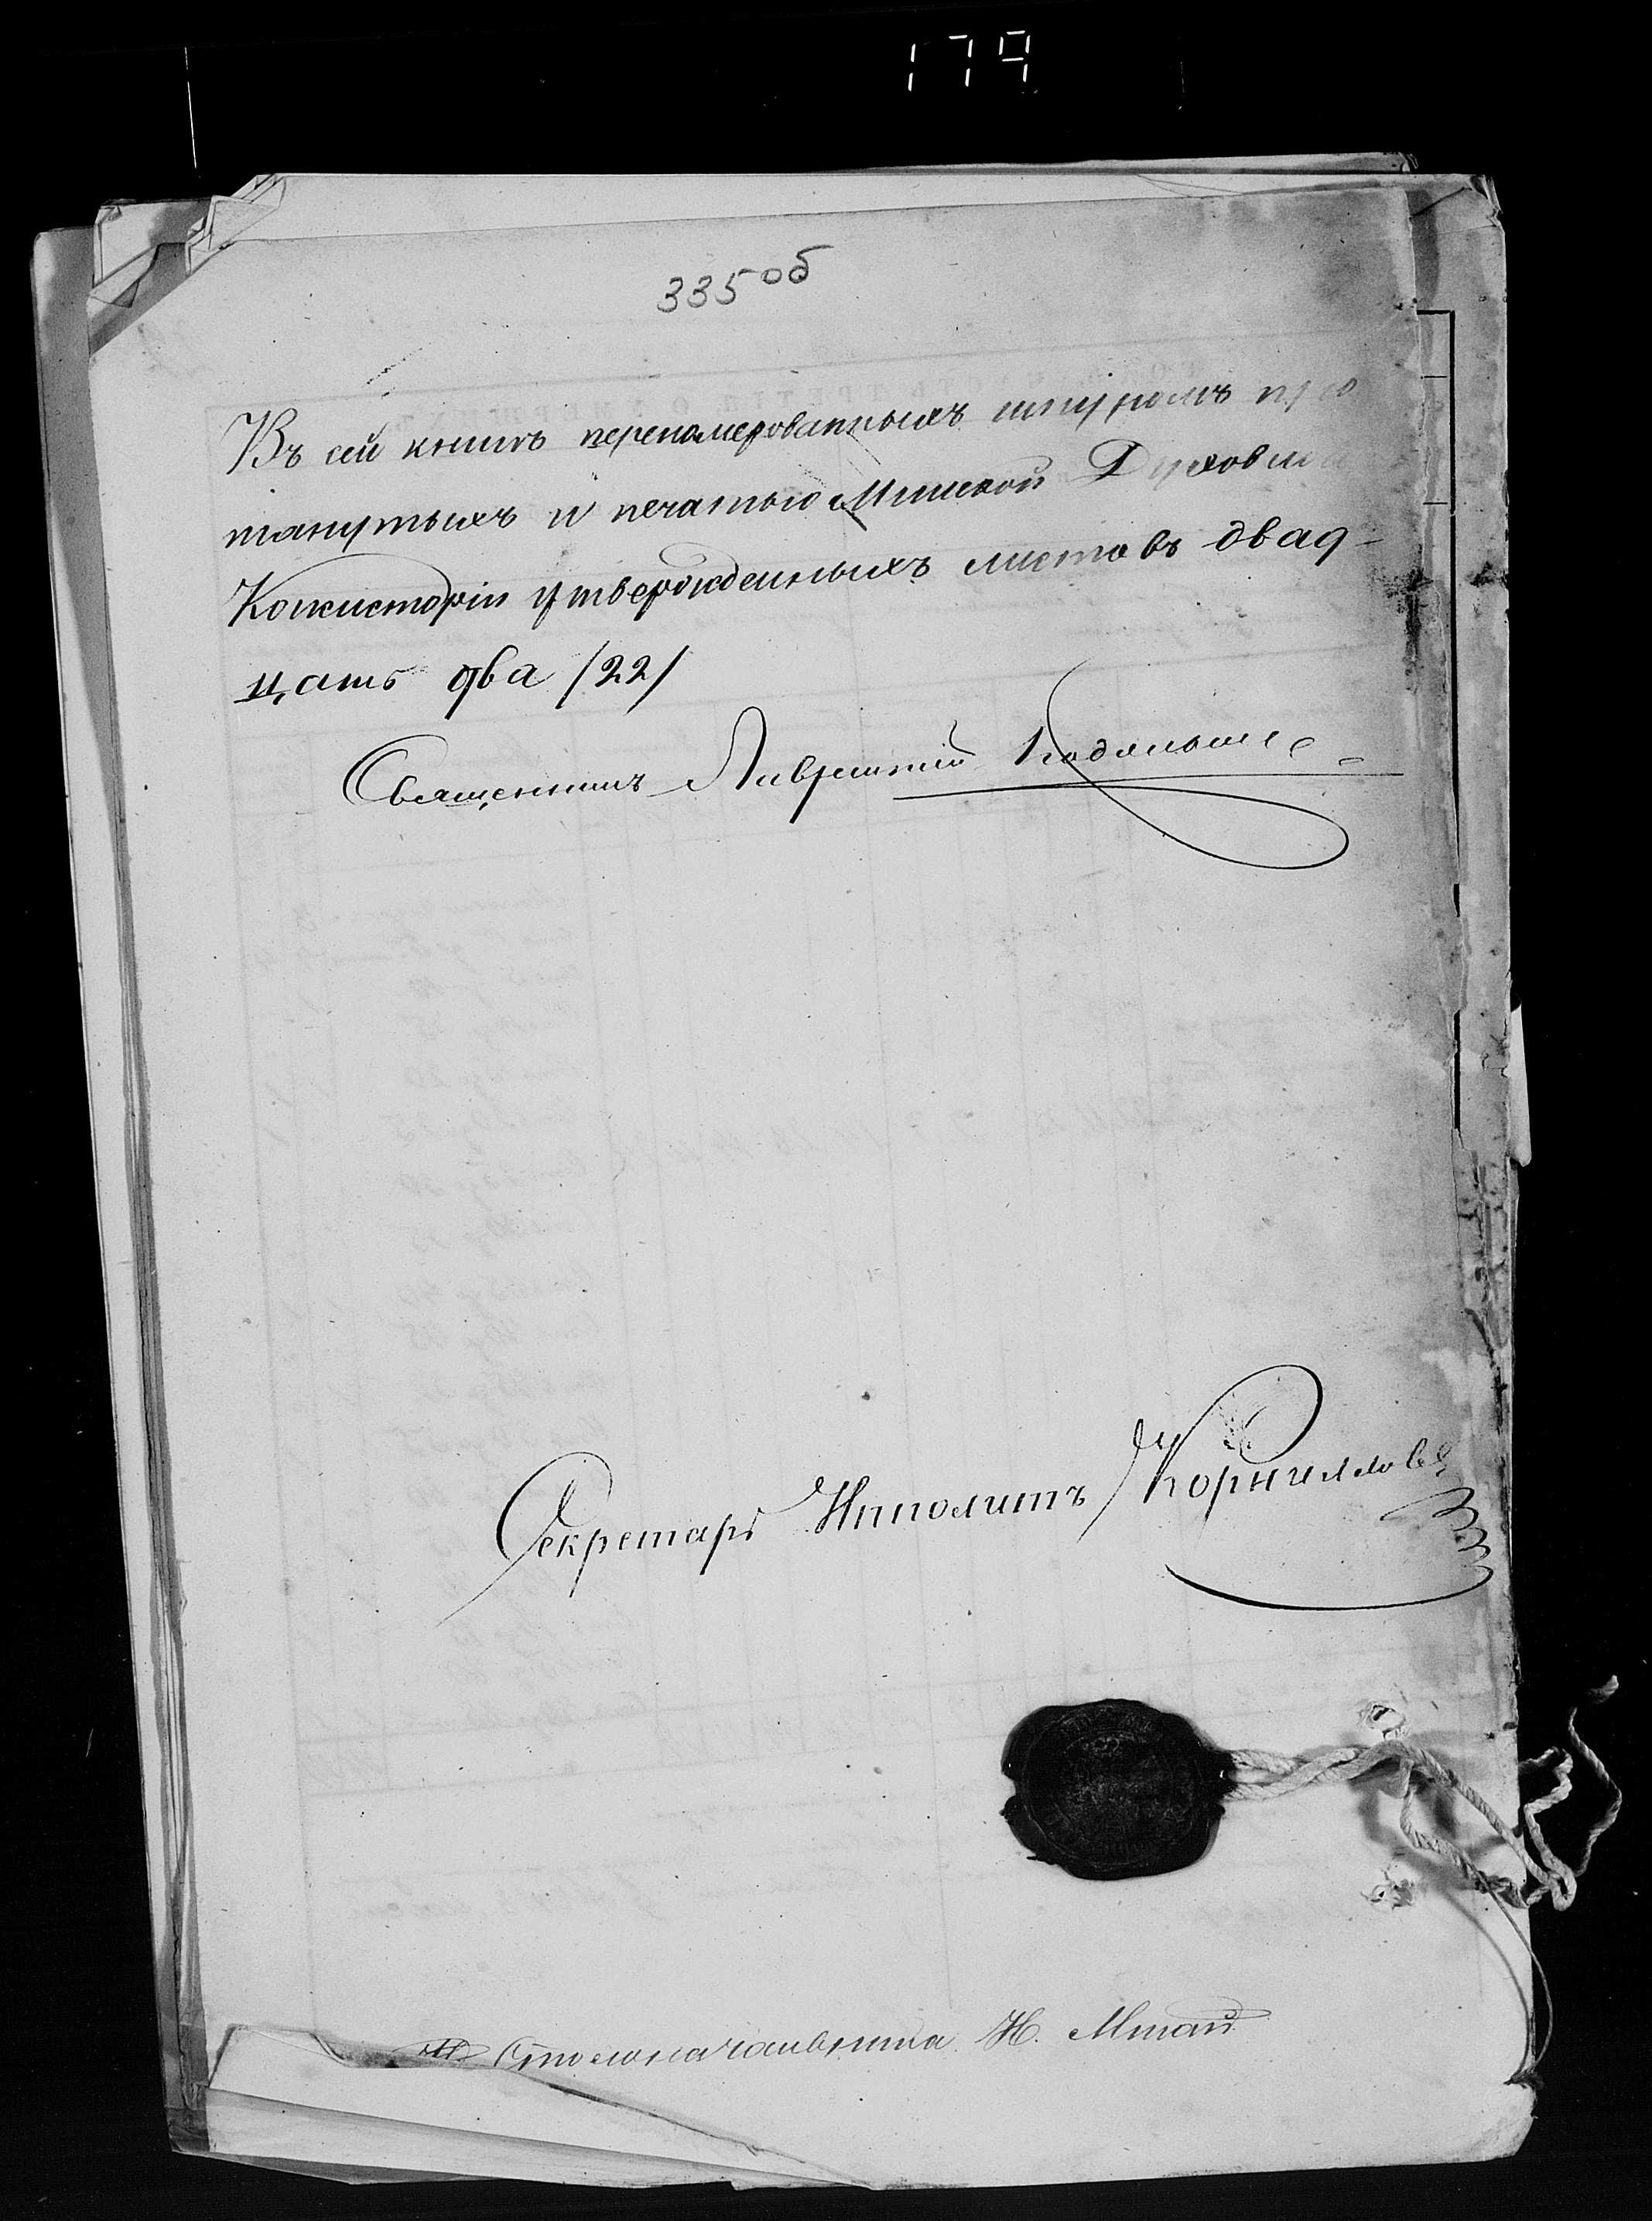 179
335 об
Въ сей книгѣ перенамерованныхъ шнуромъ про
тянутыхъ и печатью Минской Духовной
Консисторіи утвержденныхъ листовъ двад-
цать два /22/
Священникъ Лаврентій
Секретарь Ипполитъ Корнилловъ
Столоначальника Н.